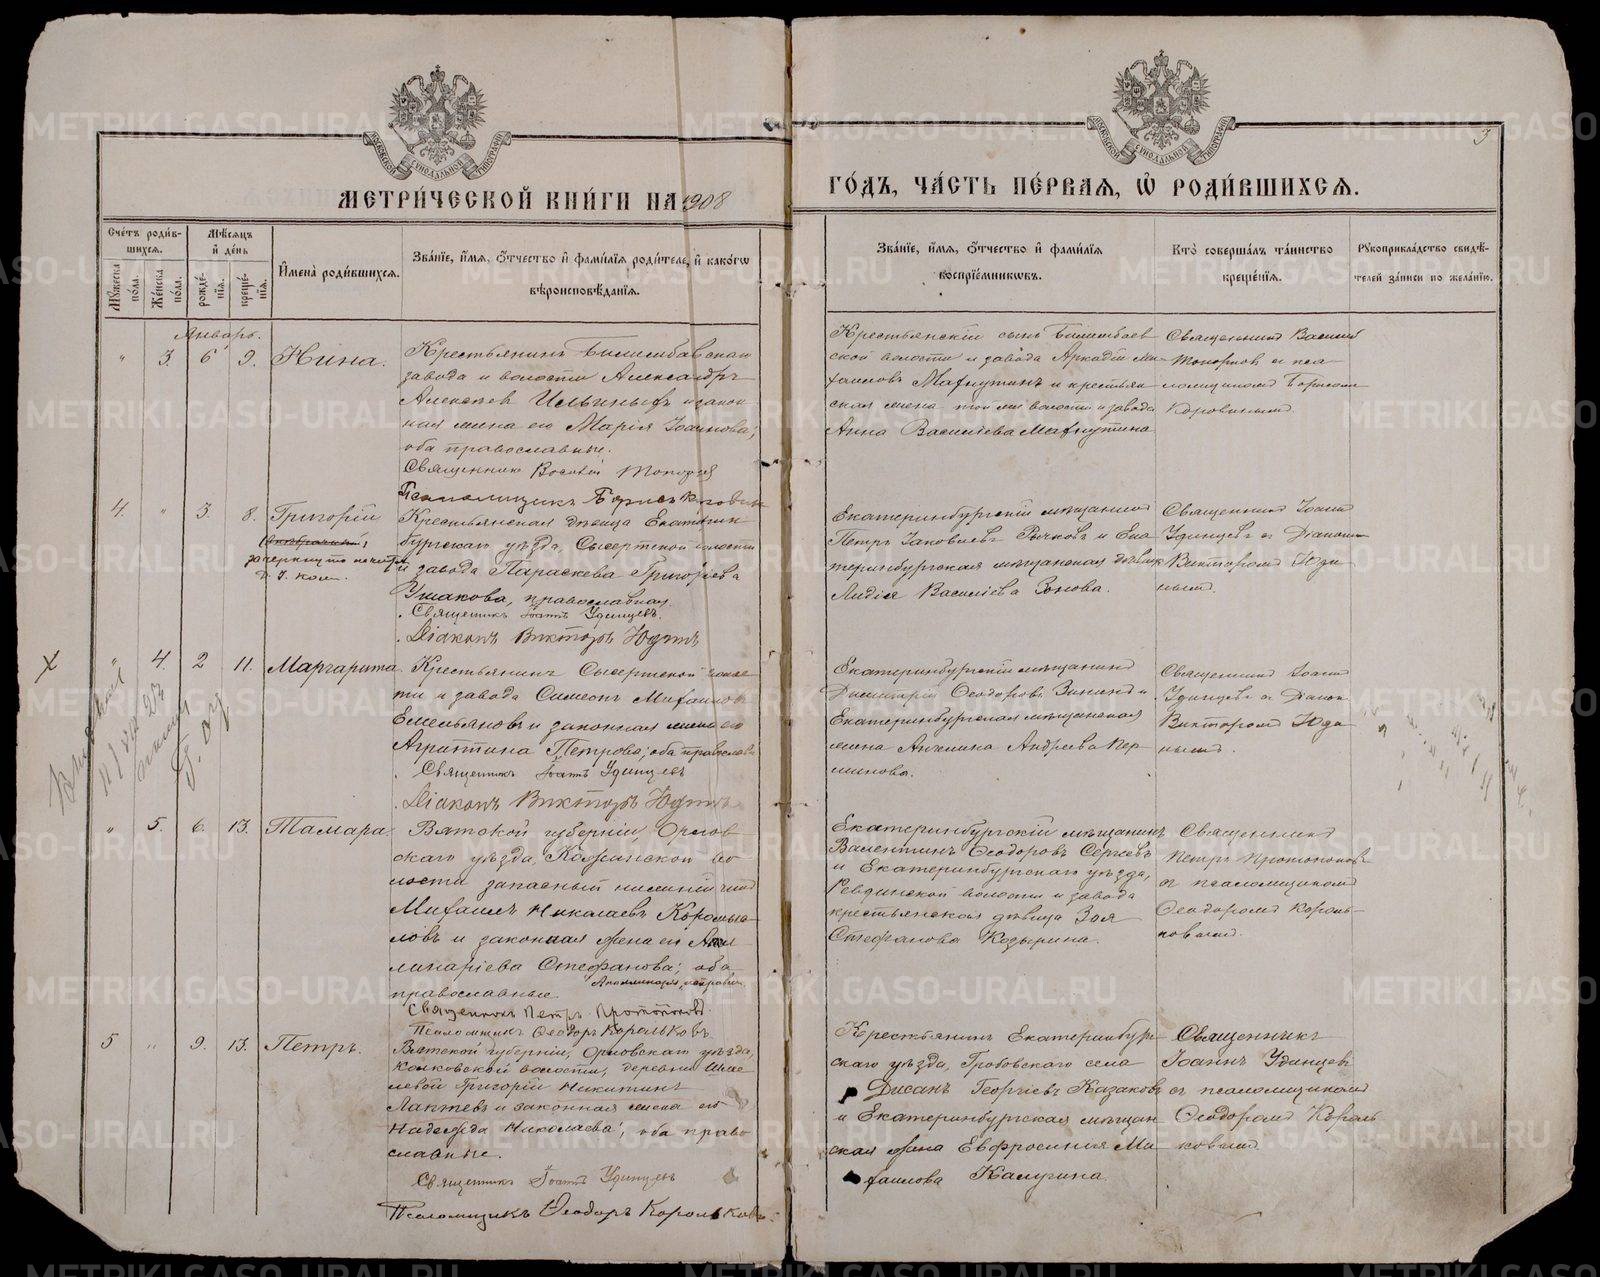 МЕТРИ́ЧЕСКОЙ КНИ́ГИ НА 1908
ГО́ДЪ, ЧА́СТЬ ПЕ́РВАѦ, Ѿ РОДИ́ВШИХСѦ.
3
Сче́тъ роди́в-
шихсѧ.
Мꙋ́жеска по́ла.
Же́нска по́ла.
Мѣ́сѧцъ
и҆ де́нь
рожде́-
нїѧ.
креще́-
нїѧ.
И҆мена̀ роди́вшихсѧ.
Зва́нїе, и҆́мѧ, ѻ҆́тчество и҆ фами́лїѧ роди́теле, и҆ како́гѡ
вѣроисповѣ́данїѧ.
Зва́нїе, и҆́мѧ, ѻ҆́тчество и҆ фами́лїѧ
воспрїе́мникѡвъ.
Кто̀ соверша́лъ та́инство
креще́нїѧ.
Рꙋкоприкла́дство свидѣ́-
телей за́писи по жела́нїю.
Январь.
" 3. 6 9. Нина.
Крестьянинъ Билимбаевскаго
завода и волости Александръ
Алексѣевъ Ильиныхъ и закон-
ная жена его Марія Іоаннова;
оба православные.
Священникъ Василій Топорковъ
Псаломщикъ Борисъ
Крестьянскій сынъ Билимбаев
ской волости и завода Аркадій Ми-
хаиловъ Махнутинъ и крестьян
ская жена той же волости и завода
Анна Васильева Махнутина
Священникъ Василій
Топорковъ съ пса-
ломщикомъ Борисом
Коровинымъ.
4. " 3. 8. Григорій
зачеркнуто не читать
Крестьянская дѣвица Екатерин
бургскаго уѣзда, Сысертской волости
и завода Параскева Григорьева
Ушакова, православная.
Священникъ Іоаннъ Удинцевъ.
Діаконъ Викторъ Юдинъ
Екатеринбургскій мѣщанинъ
Петръ Іаковлевъ Рычковъ и Ека
теринбургская мѣщанская дѣвица
Лидія Васильева Зонова.
Священникъ Іоаннъ
Удинцевъ съ Діаконом
Викторомъ Юди
нымъ.
" 4. 2 11. Маргарита
Крестьянинъ Сысертской волос
ти и завода Симеонъ Михаиловъ
Емельяновъ и законная жена его
Агриппина Петрова; оба православн
Священникъ Іоаннъ Удинцевъ
Діаконъ Викторъ Юдинъ
Екатеринбургскій мѣщанинъ
Димитрій Ѳеодоровъ Зининъ и
Екатеринбургская мѣщанская
жена Ангелина Андреева Пер-
минова.
Священникъ Іоаннъ
Удинцевъ съ Діакон
Викторомъ Юди
нымъ.
" 5. 6. 13. Тамара.
Вятской губерніи, Орлов-
скаго уѣзда, во
лости запасный нижній чинъ
Михаилъ Николаевъ Коромыс-
ловъ и законная жена его Апол
линаріева Стефанова; оба
православные.
Священникъ Петръ Протопоповъ.
Псаломщикъ Ѳеодоръ Корольковъ
Екатеринбургскій мѣщанинъ
Валентинъ Ѳеодоровъ Сергѣевъ
и Екатеринбургскаго уѣзда,
Ревдинской волости и завода
крестьянская дѣвица Зоя
Стефанова Козырина.
Священникъ
Петръ Протопоповъ
съ псаломщикомъ
Ѳеодоромъ Король-
ковымъ.
5 " 9. 13. Петръ.
Вятской губерніи, Орловскаго уѣзда,
волости, деревни
Григорій Никитинъ
Лаптевъ и законная жена его
Надежда Николаева; оба право
славные.
Священникъ Іоаннъ Удинцевъ
Псаломщикъ Ѳеодоръ Корольковъ.
Крестьянинъ Екатеринбур-
скаго уѣзда, Гробовскаго села
Георгіевъ Казаковъ
и Екатеринбургская мѣщан
ская жена Евфросинія Ми-
хаилова Калугина.
Священникъ
Іоаннъ Удинцевъ
съ псаломщикомъ
Ѳеодоромъ Король
ковымъ
METRIKI.GASO-URAL.RU